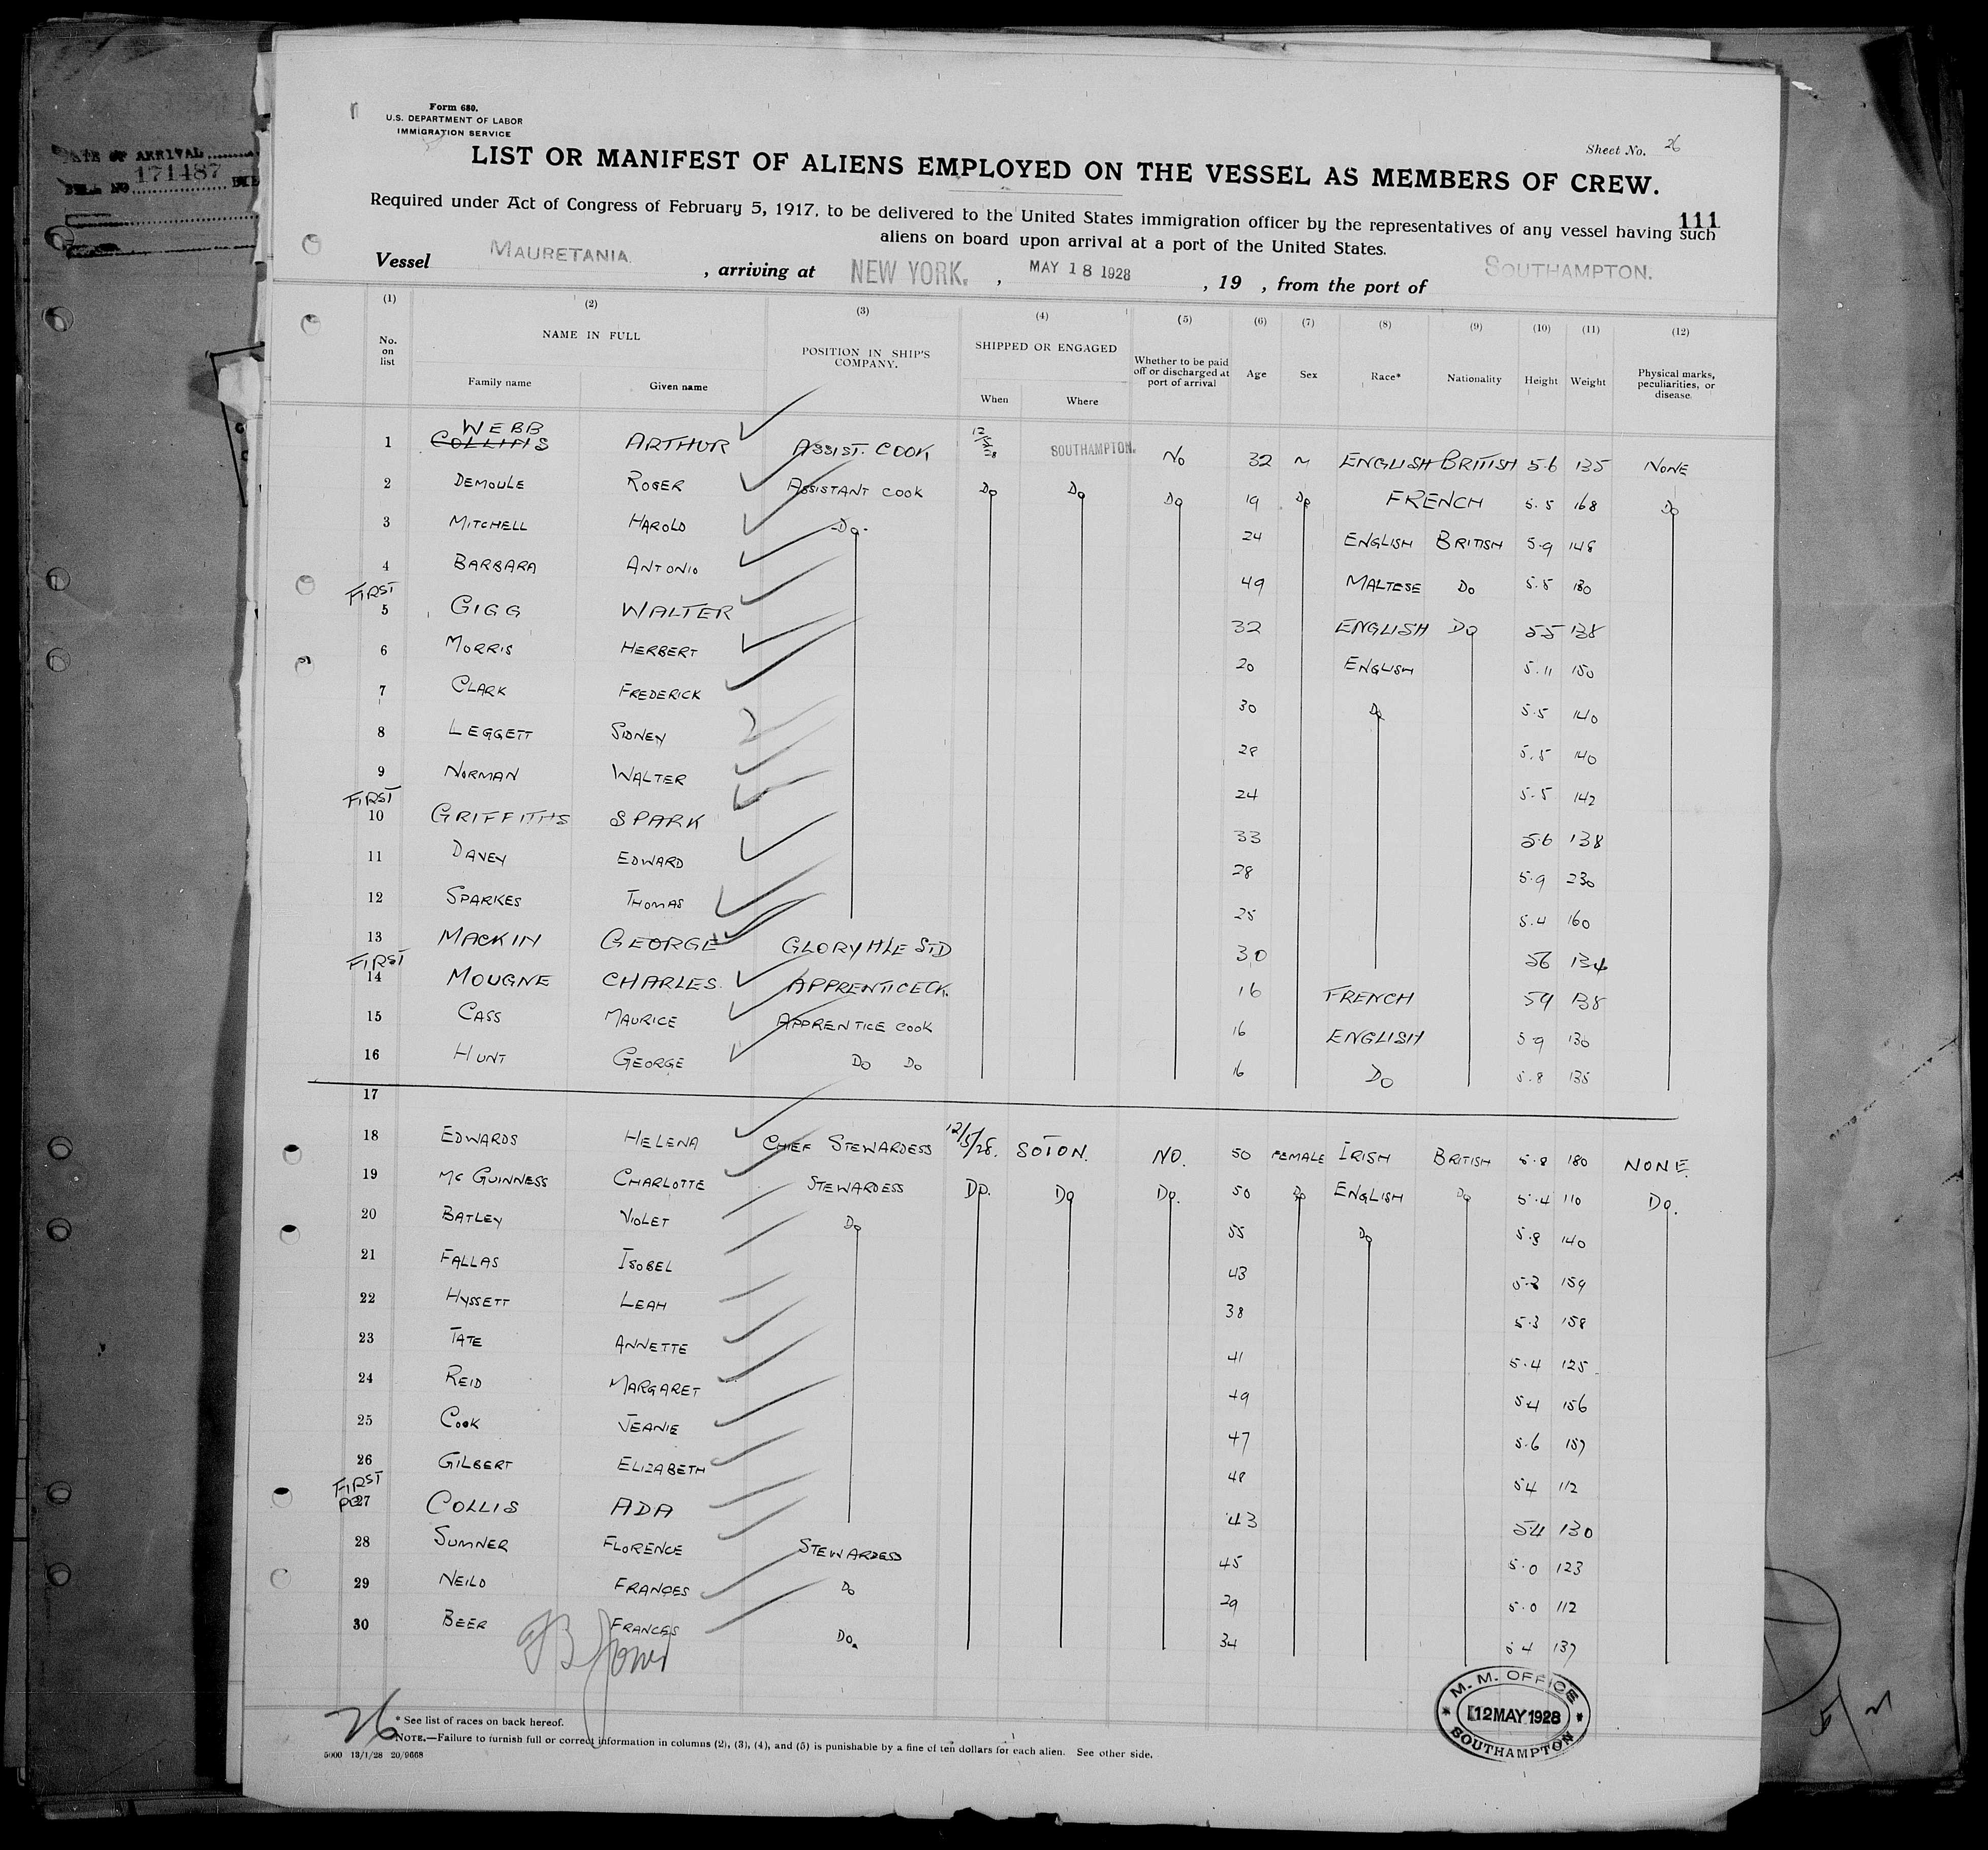 DATE OF ARRIVAL
171487
Form 680.
U.S. DEPARTMENT OF LABOR
IMMIGRATION SERVICE
Sheet No. 26
LIST OR MANIFEST OF ALIENS EMPLOYED ON THE VESSEL AS MEMBERS OF CREW.
111
Required under Act of Congress of February 5, 1917, to be delivered to the United States immigration officer by the representatives of any vessel having such
aliens on board upon arrival at a port of the United States.
Vessel MAURETANIA, arriving at NEW YORK, MAY 18 1928, 19 , from the port of SOUTHAMPTON.
(1) (2) (3) (4) (5) (6) (7) (8) (9) (10) (11) (12)
No. on list NAME IN FULL Family name Given name POSITION IN SHIP'S COMPANY. SHIPPED OR ENGAGED When Where Whether to be paid off or discharged at port of arrival Age Sex Race* Nationality Height Weight Physical marks, peculiarities, or disease.
WEBB
1 COLLINS ARTHUR ASSIST. COOK 12/5/28 SOUTHAMPTON. NO 32 M ENGLISH BRITISH 5.6 135 NONE
2 DEMOULE ROGER ASSISTANT COOK DO DO DO 19 DO FRENCH 5.5 168 DO
3 MITCHELL HAROLD -DO- 24 ENGLISH BRITISH 5.9 148
4 BARBARA ANTONIO 49 MALTESE DO 5.5 180
FIRST
5 GIGG WALTER 32 ENGLISH DO 55 138
6 MORRIS HERBERT 20 ENGLISH 5.11 150
7 CLARK FREDERICK 30 DO 5.5 140
8 LEGGETT SIDNEY 28 5.5 140
9 NORMAN WALTER 24 5.5 142
FIRST
10 GRIFFITHS SPARK 33 5.6 138
11 DAVEY EDWARD 28 5.9 230
12 SPARKES THOMAS 25 5.4 160
13 MACKIN GEORGE GLORY HLE STD 30 56 134
FIRST
14 MOUGNE CHARLES APPRENTICE CK. 16 FRENCH 59 138
15 CASS MAURICE APPRENTICE COOK 16 ENGLISH 5.9 130
16 HUNT GEORGE DO DO 16 DO 5.8 135
17
18 EDWARDS HELENA CHIEF STEWARDESS 12/5/28. SOTON. NO. 50 FEMALE IRISH BRITISH 5.8 180 NONE.
19 MC GUINNESS CHARLOTTE STEWARDESS DO. DO DO. 50 DO ENGLISH DO 5.4 110 DO.
20 BATLEY VIOLET DO 55 DO 5.8 140
21 FALLAS ISOBEL 43 5.3 159
22 HYSSETT LEAH 38 5.3 158
23 TATE ANNETTE 41 5.4 125
24 REID MARGARET 49 5.4 156
25 COOK JEANIE 47 5.6 157
26 GILBERT ELIZABETH 48 54 112
FIRST
27 COLLIS ADA 43 54 130
28 SUMNER FLORENCE STEWARDESS 45 5.0 123
29 NEILD FRANCES DO 29 5.0 112
30 BEER FRANCES DO. 34 5 4 137
M. M. OFFICE
12 MAY 1928
SOUTHAMPTON
26
* See list of races on back hereof.
NOTE.—Failure to furnish full or correct information in columns (2), (3), (4), and (5) is punishable by a fine of ten dollars for each alien. See other side.
5000 13/1/28 20/9668